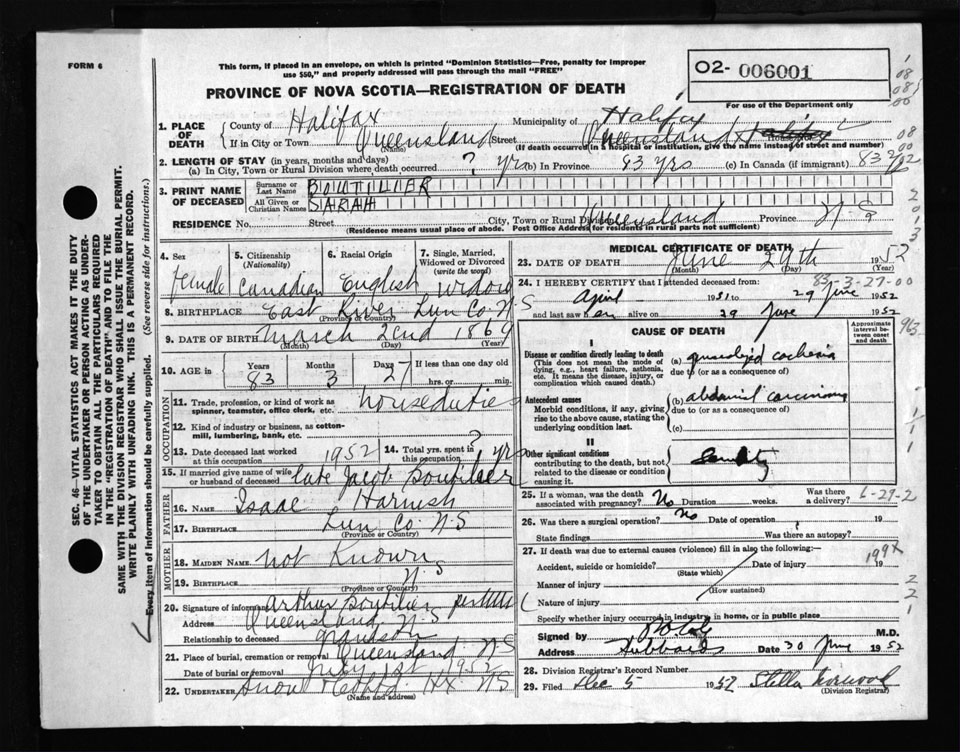 FORM 6
This form, if placed in an envelope, on which is printed "Dominion Statistics—Free, penalty for improper
use $50," and properly addressed will pass through the mail "FREE"
O2- 006001
For use of the Department only
PROVINCE OF NOVA SCOTIA—REGISTRATION OF DEATH
1. PLACE OF DEATH
County of Halifax Municipality of Halifax
If in City or Town Queensland Street Queensland Halifax
(Name) (If death occurred in a hospital or institution, give the name instead of street and number)
2. LENGTH OF STAY (in years, months and days)
(a) In City, Town or Rural Division where death occurred ? yrs (b) In Province 83 yrs (c) In Canada (if immigrant) 83
3. PRINT NAME OF DECEASED
Surname or Last Name BOUTILIER
All Given or Christian Names SARAH
RESIDENCE No. Street City, Town or Rural Division Queensland Province N S
(Residence means usual place of abode. Post Office Address for residents in rural parts not sufficient)
4. Sex Female
5. Citizenship (Nationality) Canadian
6. Racial Origin English
7. Single, Married, Widowed or Divorced (write the word) Widow
8. BIRTHPLACE East River Lun Co. N S
(Province or Country)
9. DATE OF BIRTH March 22nd 1869
(Month) (Day) (Year)
10. AGE in Years 83 Months 3 Days 27 If less than one day old hrs. or min.
OCCUPATION
11. Trade, profession, or kind of work as spinner, teamster, office clerk, etc. house duties
12. Kind of industry or business, as cotton-mill, lumbering, bank, etc.
13. Date deceased last worked at this occupation 1952
14. Total yrs. spent in this occupation ? yrs
15. If married give name of wife or husband of deceased late Jacob Boutilier
FATHER
16. Name Isaac Harnish
17. Birthplace Lun Co. N S
(Province or Country)
MOTHER
18. MAIDEN NAME not Known
19. BIRTHPLACE N S
(Province or Country)
20. Signature of informant Arthur Boutilier
Address Queensland N S
Relationship to deceased grandson
21. Place of burial, cremation or removal Queensland N S
Date of burial or removal July 1st 1952
22. UNDERTAKER Snow & Co Hx N S
(Name and address)
MEDICAL CERTIFICATE OF DEATH
23. DATE OF DEATH June 29th 1952
(Month) (Day) (Year)
83-3-27-00
24. I HEREBY CERTIFY that I attended deceased from:
April 1951 to 29 June 1952
and last saw her alive on 29 June 1952
CAUSE OF DEATH
Approximate interval between onset and death
I
Disease or condition directly leading to death
(This does not mean the mode of dying, e.g., heart failure, asthenia, etc. It means the disease, injury, or complication which caused death.)
(a) generalized cachexia
due to (or as a consequence of)
Antecedent causes
Morbid conditions, if any, giving rise to the above cause, stating the underlying condition last.
(b) abdominal carcinoma
due to (or as a consequence of)
(c)
II
Other significant conditions contributing to the death, but not related to the disease or condition causing it.
Senility
25. If a woman, was the death associated with pregnancy? No Duration weeks. Was there a delivery? 6-29-2
26. Was there a surgical operation? No Date of operation 19
State findings Was there an autopsy?
27. If death was due to external causes (violence) fill in also the following:—
Accident, suicide or homicide? Date of injury 19
(State which)
199X
Manner of injury
(How sustained)
Nature of injury
Specify whether injury occurred in industry, in home, or in public place
Signed by M.D.
Address Hubbards Date 30 June 1952
28. Division Registrar's Record Number
29. Filed Dec 5 1952 Stella Norwood
(Division Registrar)
SEC. 46—VITAL STATISTICS ACT MAKES IT THE DUTY
OF THE UNDERTAKER OR PERSON ACTING AS UNDER-
TAKER TO OBTAIN ALL THE PARTICULARS REQUIRED
IN THE "REGISTRATION OF DEATH" AND TO FILE THE
SAME WITH THE DIVISION REGISTRAR WHO SHALL ISSUE THE BURIAL PERMIT.
WRITE PLAINLY WITH UNFADING INK. THIS IS A PERMANENT RECORD.
Every item of information should be carefully supplied. (See reverse side for instructions.)